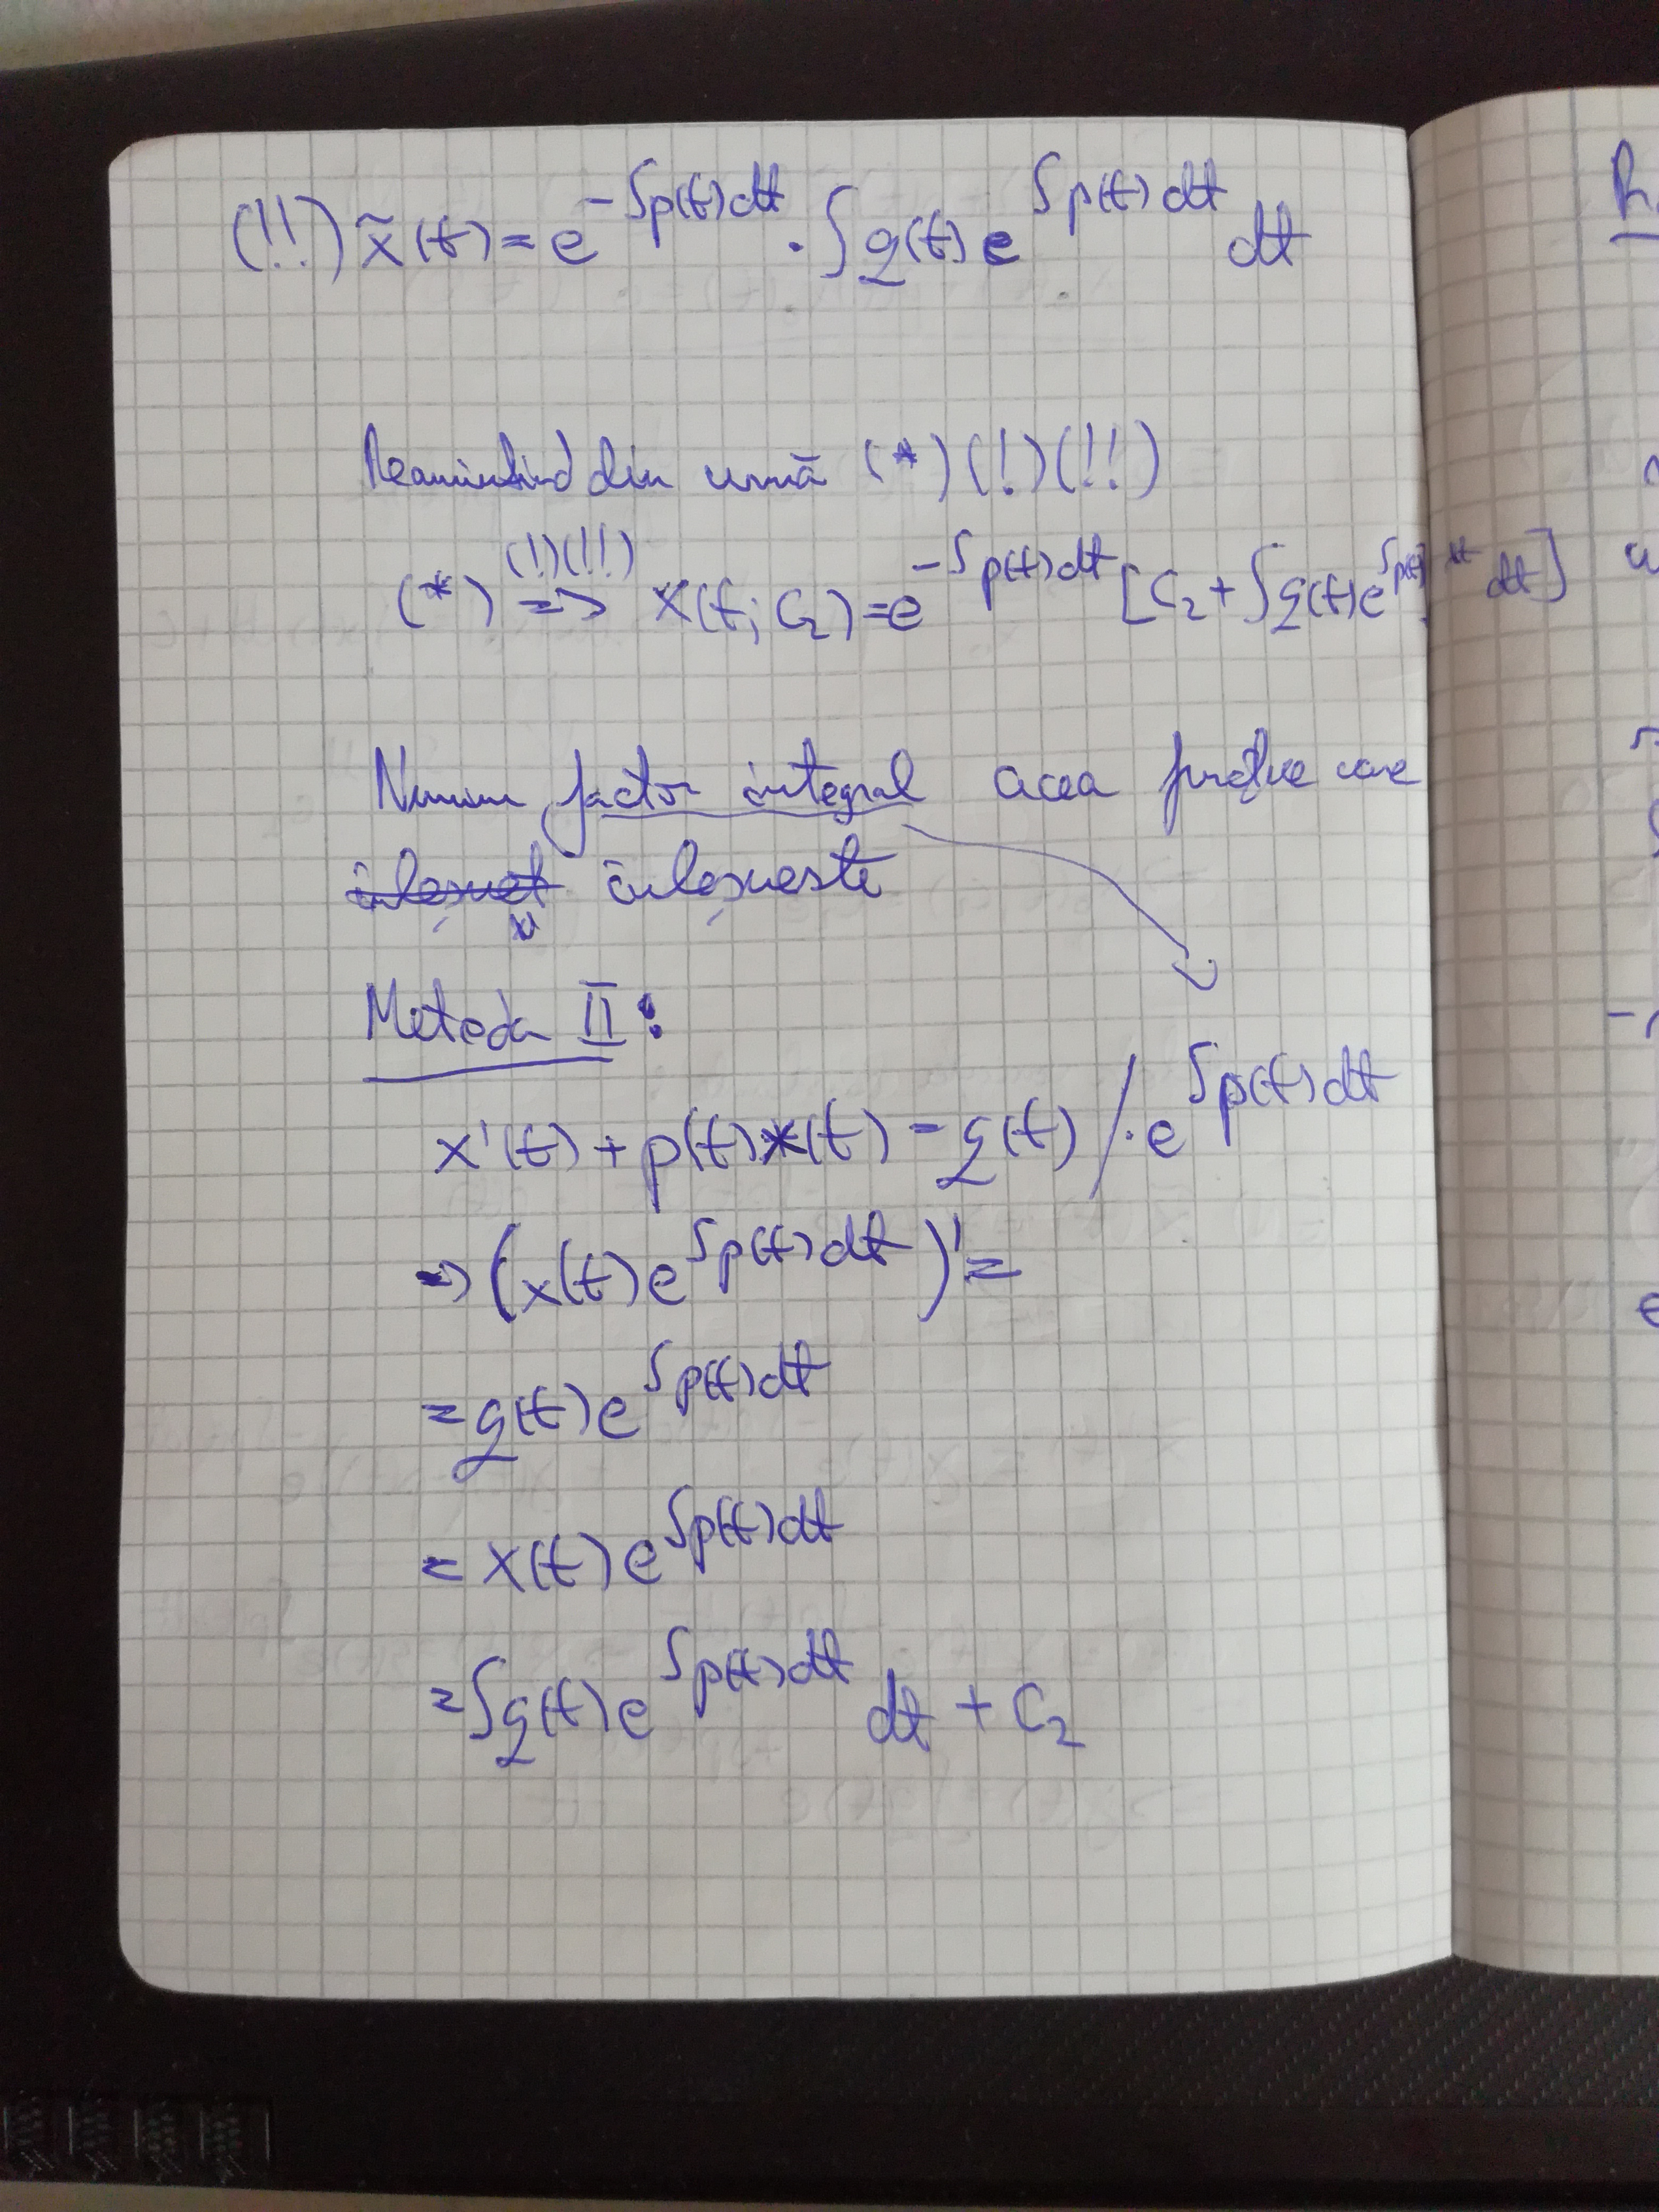 (!!) x̃(t) = e^{-∫p(t)dt} · ∫q(t) e^{∫p(t)dt} dt
Reamintind din urmă (*)(!)(!!)
(*) =>^{(!)(!!)} x(t; C₂) = e^{-∫p(t)dt} [C₂ + ∫q(t)e^{∫p(t)dt} dt]
Numim factor integral acea funcție care
înlesnește
Metoda II:
x'(t) + p(t)x(t) = q(t) / · e^{∫p(t)dt}
=> (x(t)e^{∫p(t)dt})' =
= q(t)e^{∫p(t)dt}
= x(t)e^{∫p(t)dt}
= ∫q(t)e^{∫p(t)dt} dt + C₂